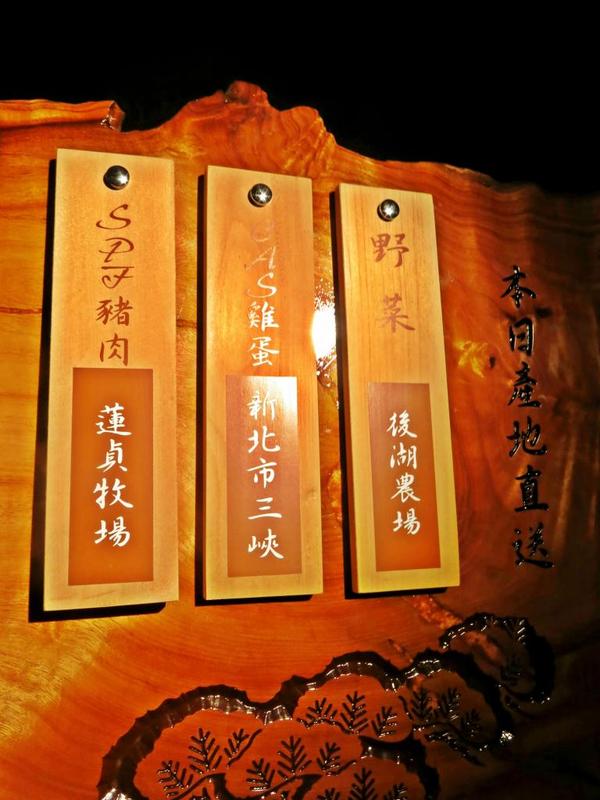 本日產地直送
野菜
後湖農場
CAS雞蛋
新北市三峽
SPF豬肉
蓮貞牧場